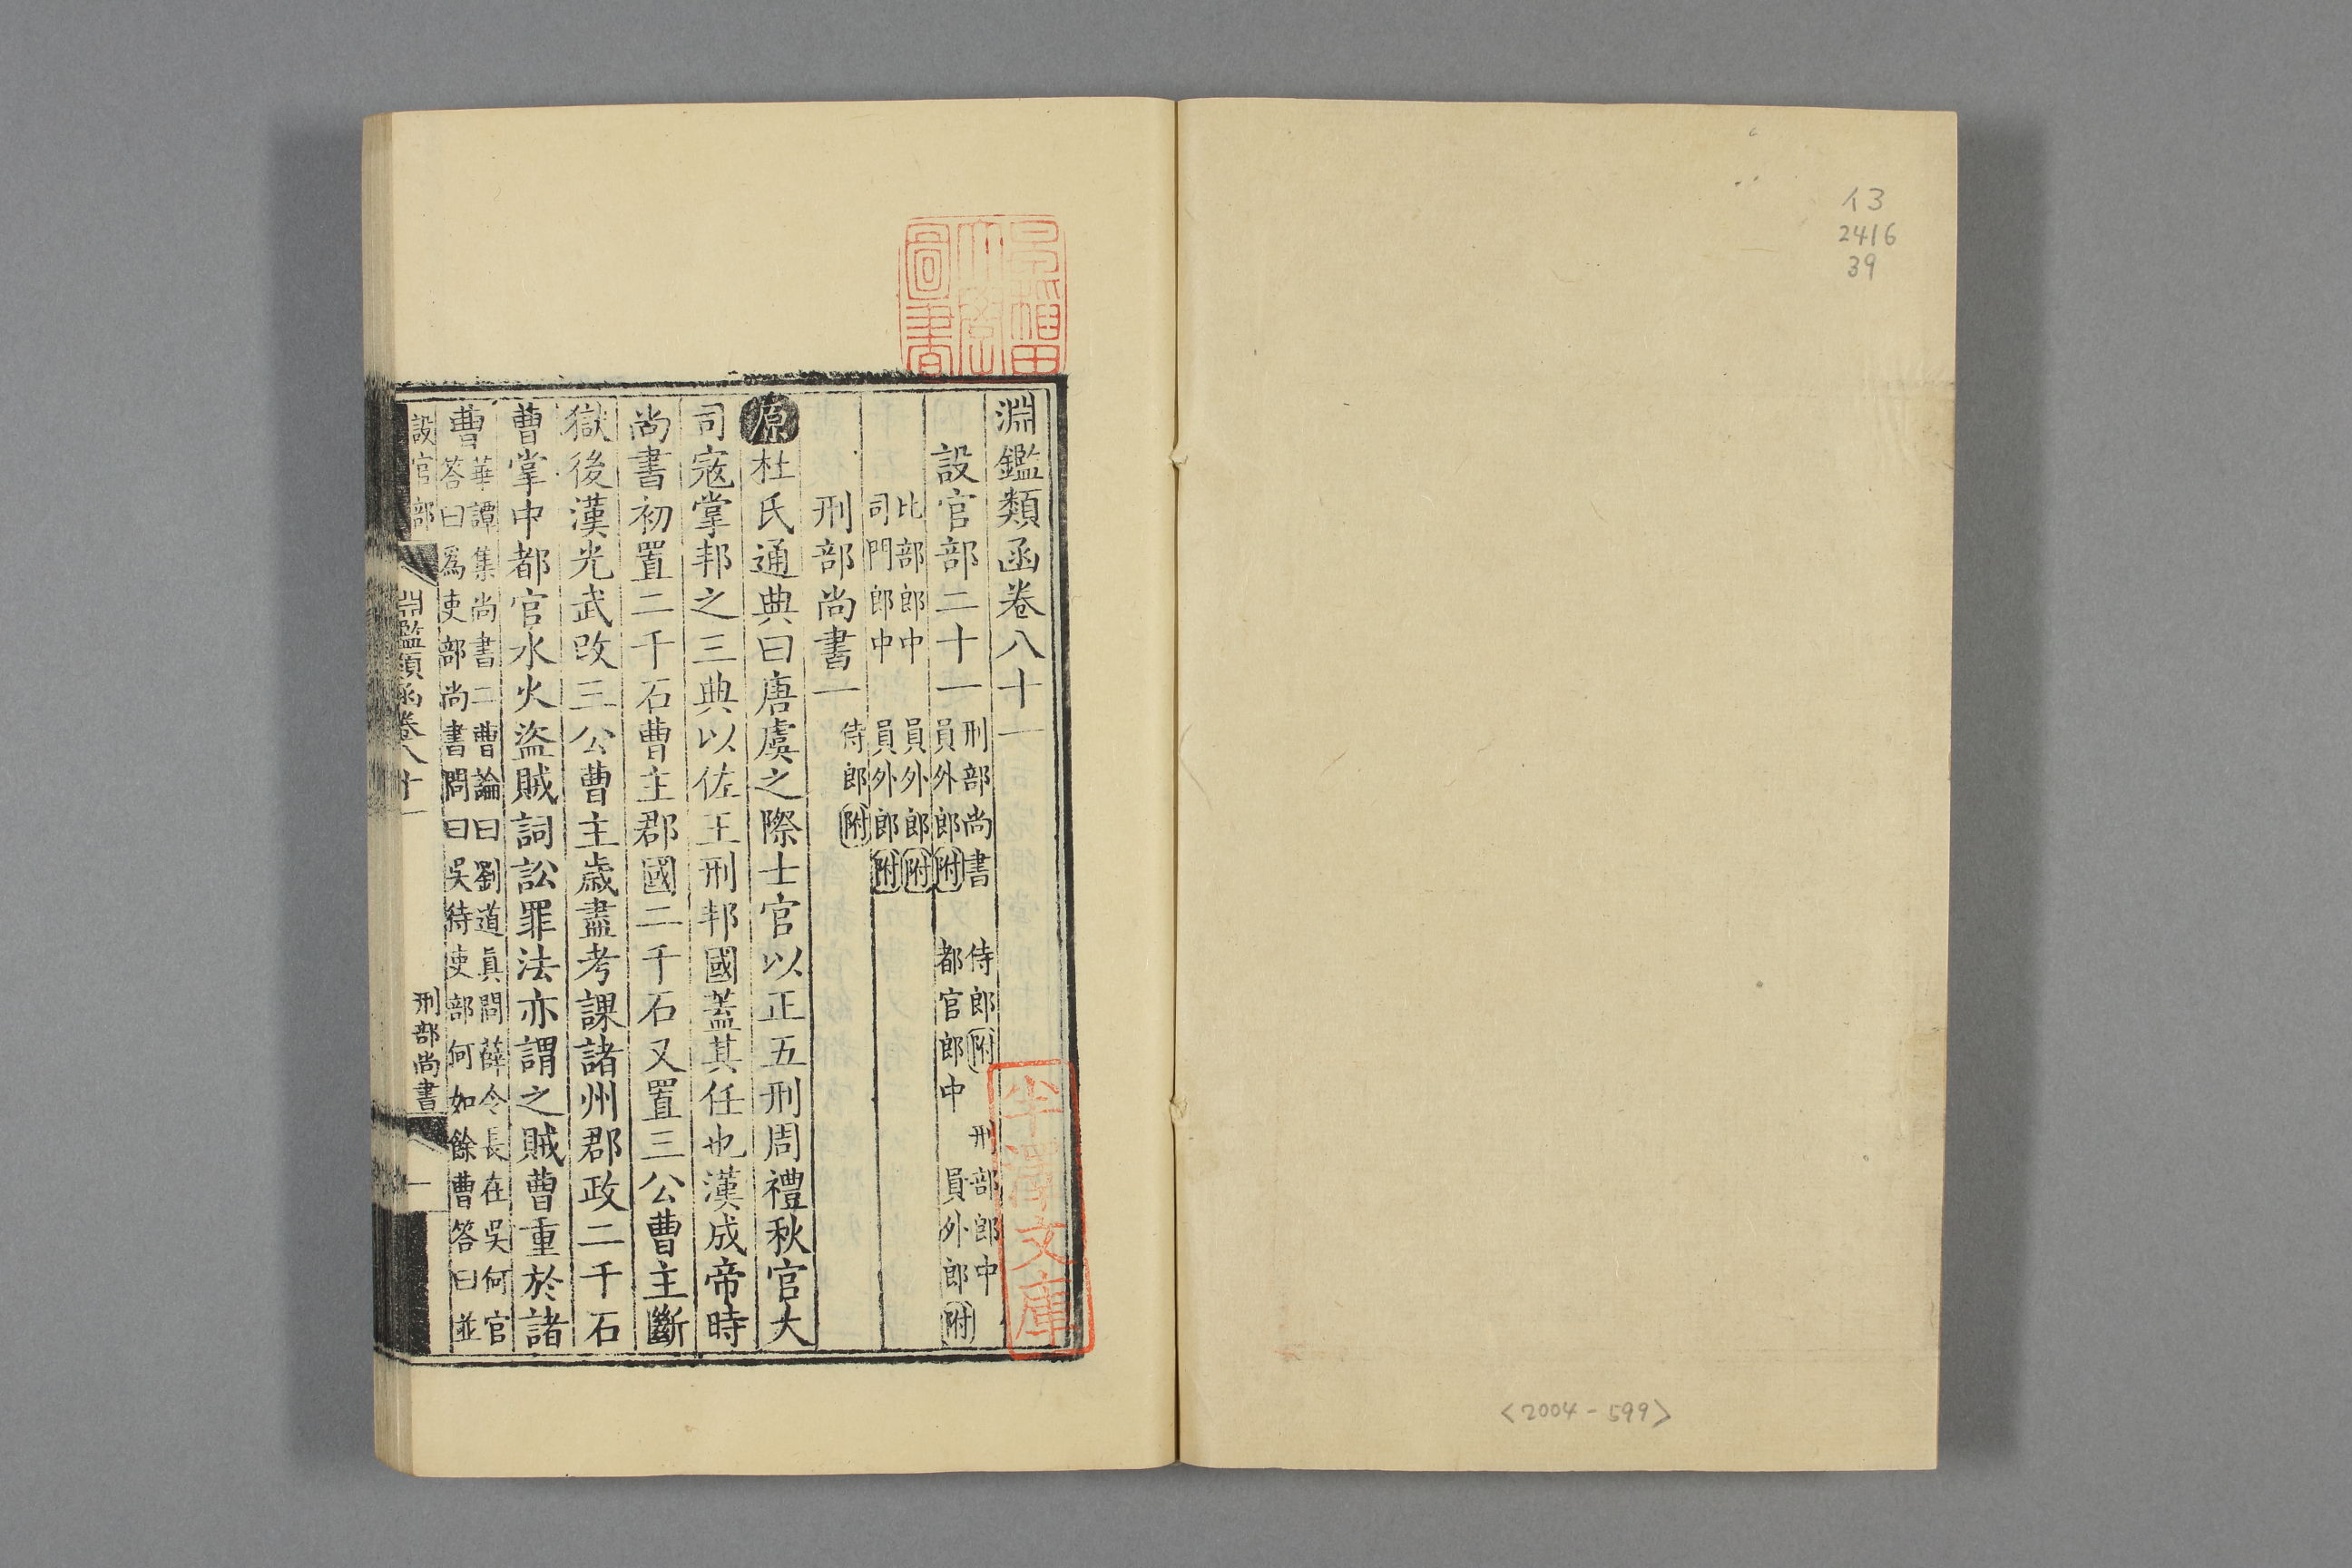 イ3
2416
39
<2004-599>
淵鑑類函卷八十一
設官部二十一 刑部尚書 侍郎附 刑部郎中
員外郎附 都官郎中 員外郎附
比部郎中 員外郎附
司門郎中 員外郎附
刑部尚書一 侍郎附
原杜氏通典曰唐虞之際士官以正五刑周禮秋官大
司寇掌邦之三典以佐王刑邦國蓋其任也漢成帝時
尚書初置二千石曹主郡國二千石又置三公曹主斷
獄後漢光武改三公曹主歲盡考課諸州郡政二千石
曹掌中都官水火盜賊詞訟罪法亦謂之賊曹重於諸
曹 華譚集尚書二曹論曰劉道真問薛令長在吳何官
答曰爲吏部尚書問曰吳待吏部何如餘曹答曰並
設官部 淵鑑類函卷八十一 刑部尚書 一
圖書
半澤文庫